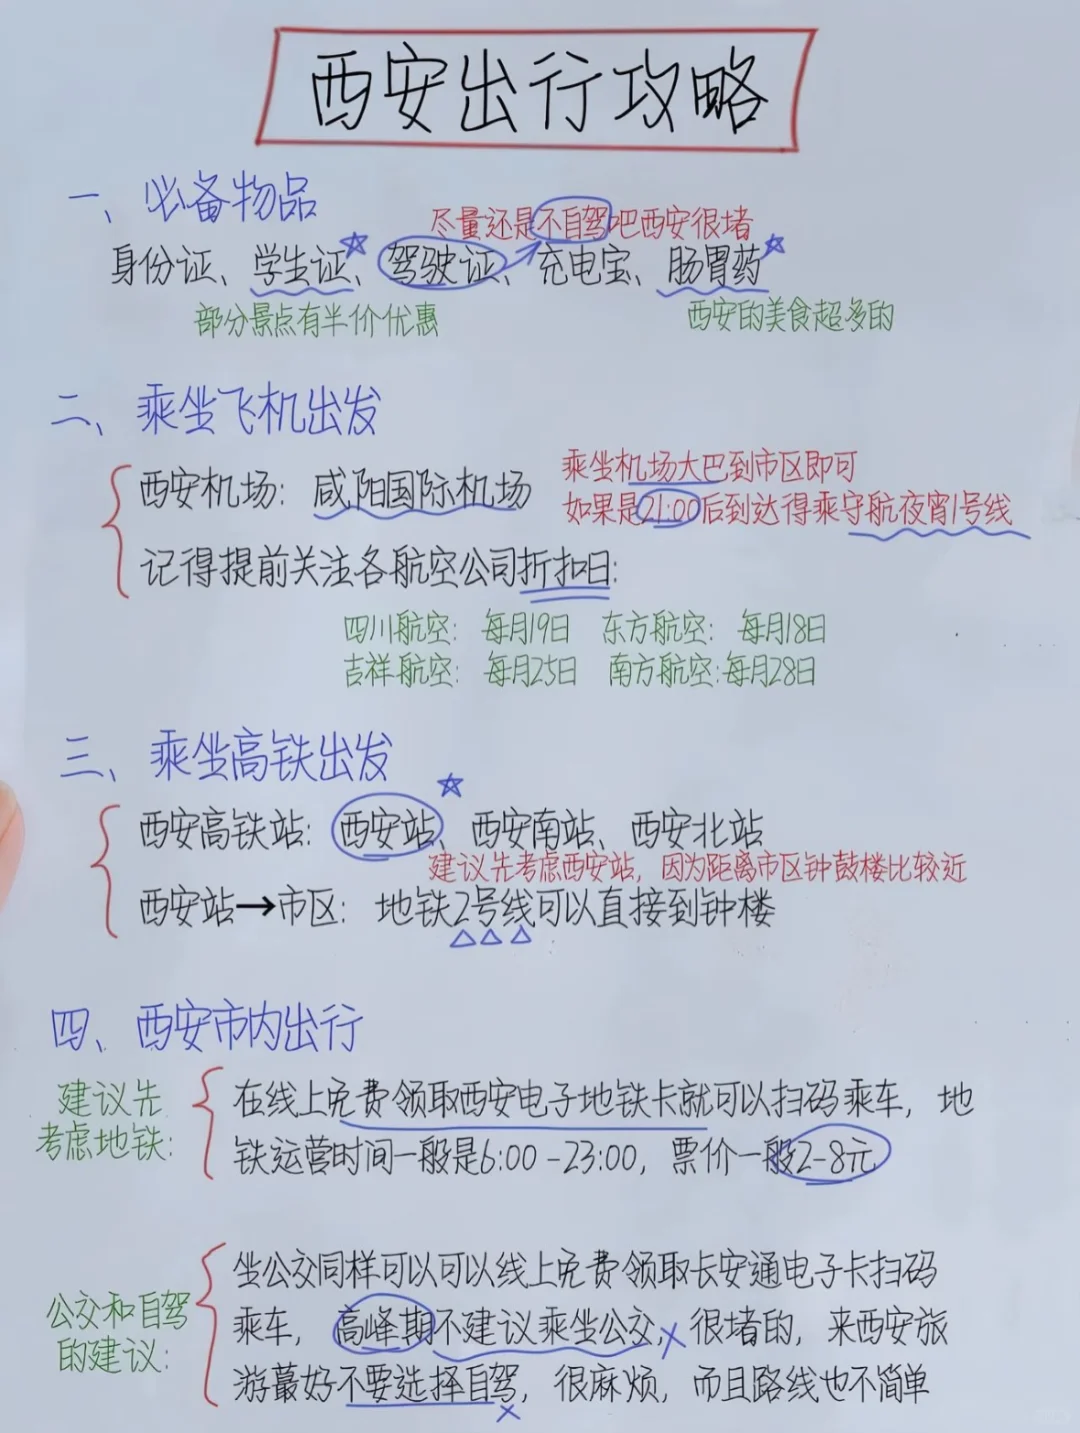 西安出行攻略
一、必备物品
尽量还是不自驾吧西安很堵
身份证、学生证、驾驶证、充电宝、肠胃药
部分景点有半价优惠
西安的美食超多的
二、乘坐飞机出发
西安机场：咸阳国际机场
乘坐机场大巴到市区即可
如果是21:00后到达得乘守航夜宵1号线
记得提前关注各航空公司折扣日：
四川航空： 每月19日 东方航空： 每月18日
吉祥航空： 每月25日 南方航空：每月28日
三、乘坐高铁出发
西安高铁站：西安站、西安南站、西安北站
建议先考虑西安站，因为距离市区钟鼓楼比较近
西安站→市区：地铁2号线可以直接到钟楼
四、西安市内出行
建议先
考虑地铁：
在线上免费领取西安电子地铁卡就可以扫码乘车，地
铁运营时间一般是6:00-23:00，票价一般2-8元
公交和自驾
的建议：
坐公交同样可以可以线上免费领取长安通电子卡扫码
乘车，高峰期不建议乘坐公交，很堵的，来西安旅
游最好不要选择自驾，很麻烦，而且路线也不简单